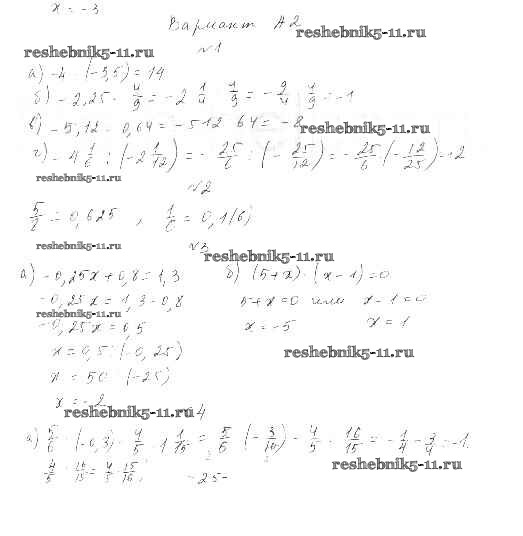 x = -3
Вариант А2
reshebnik5-11.ru
№1
reshebnik5-11.ru
а) -4 · (-3,5) = 14
б) -2,25 · 4/9 = -2 1/4 · 4/9 = -9/4 · 4/9 = -1
в) -5,12 : 0,64 = -512 : 64 = -8
reshebnik5-11.ru
г) -4 1/6 : (-2 1/12) = -25/6 : (-25/12) = -25/6 · (-12/25) = 2
reshebnik5-11.ru
№2
5/8 = 0,625 , 1/6 = 0,1(6)
reshebnik5-11.ru
№3
reshebnik5-11.ru
а) -0,25x + 0,8 = 1,3 б) (5+x) · (x-1) = 0
-0,25x = 1,3 - 0,8 5+x=0 или x-1=0
reshebnik5-11.ru
-0,25x = 0,5 x = -5 x = 1
x = 0,5 : (-0,25)
reshebnik5-11.ru
x = 50 : (-25)
x = -2
reshebnik5-11.ru
№4
а) 5/6 · (-0,3) - 4/5 : 1 1/15 = 5/6 · (-3/10) - 4/5 : 16/15 = -1/4 - 3/4 = -1.
reshebnik5-11.ru
4/5 : 16/15 = 4/5 · 15/16 ;
-25-